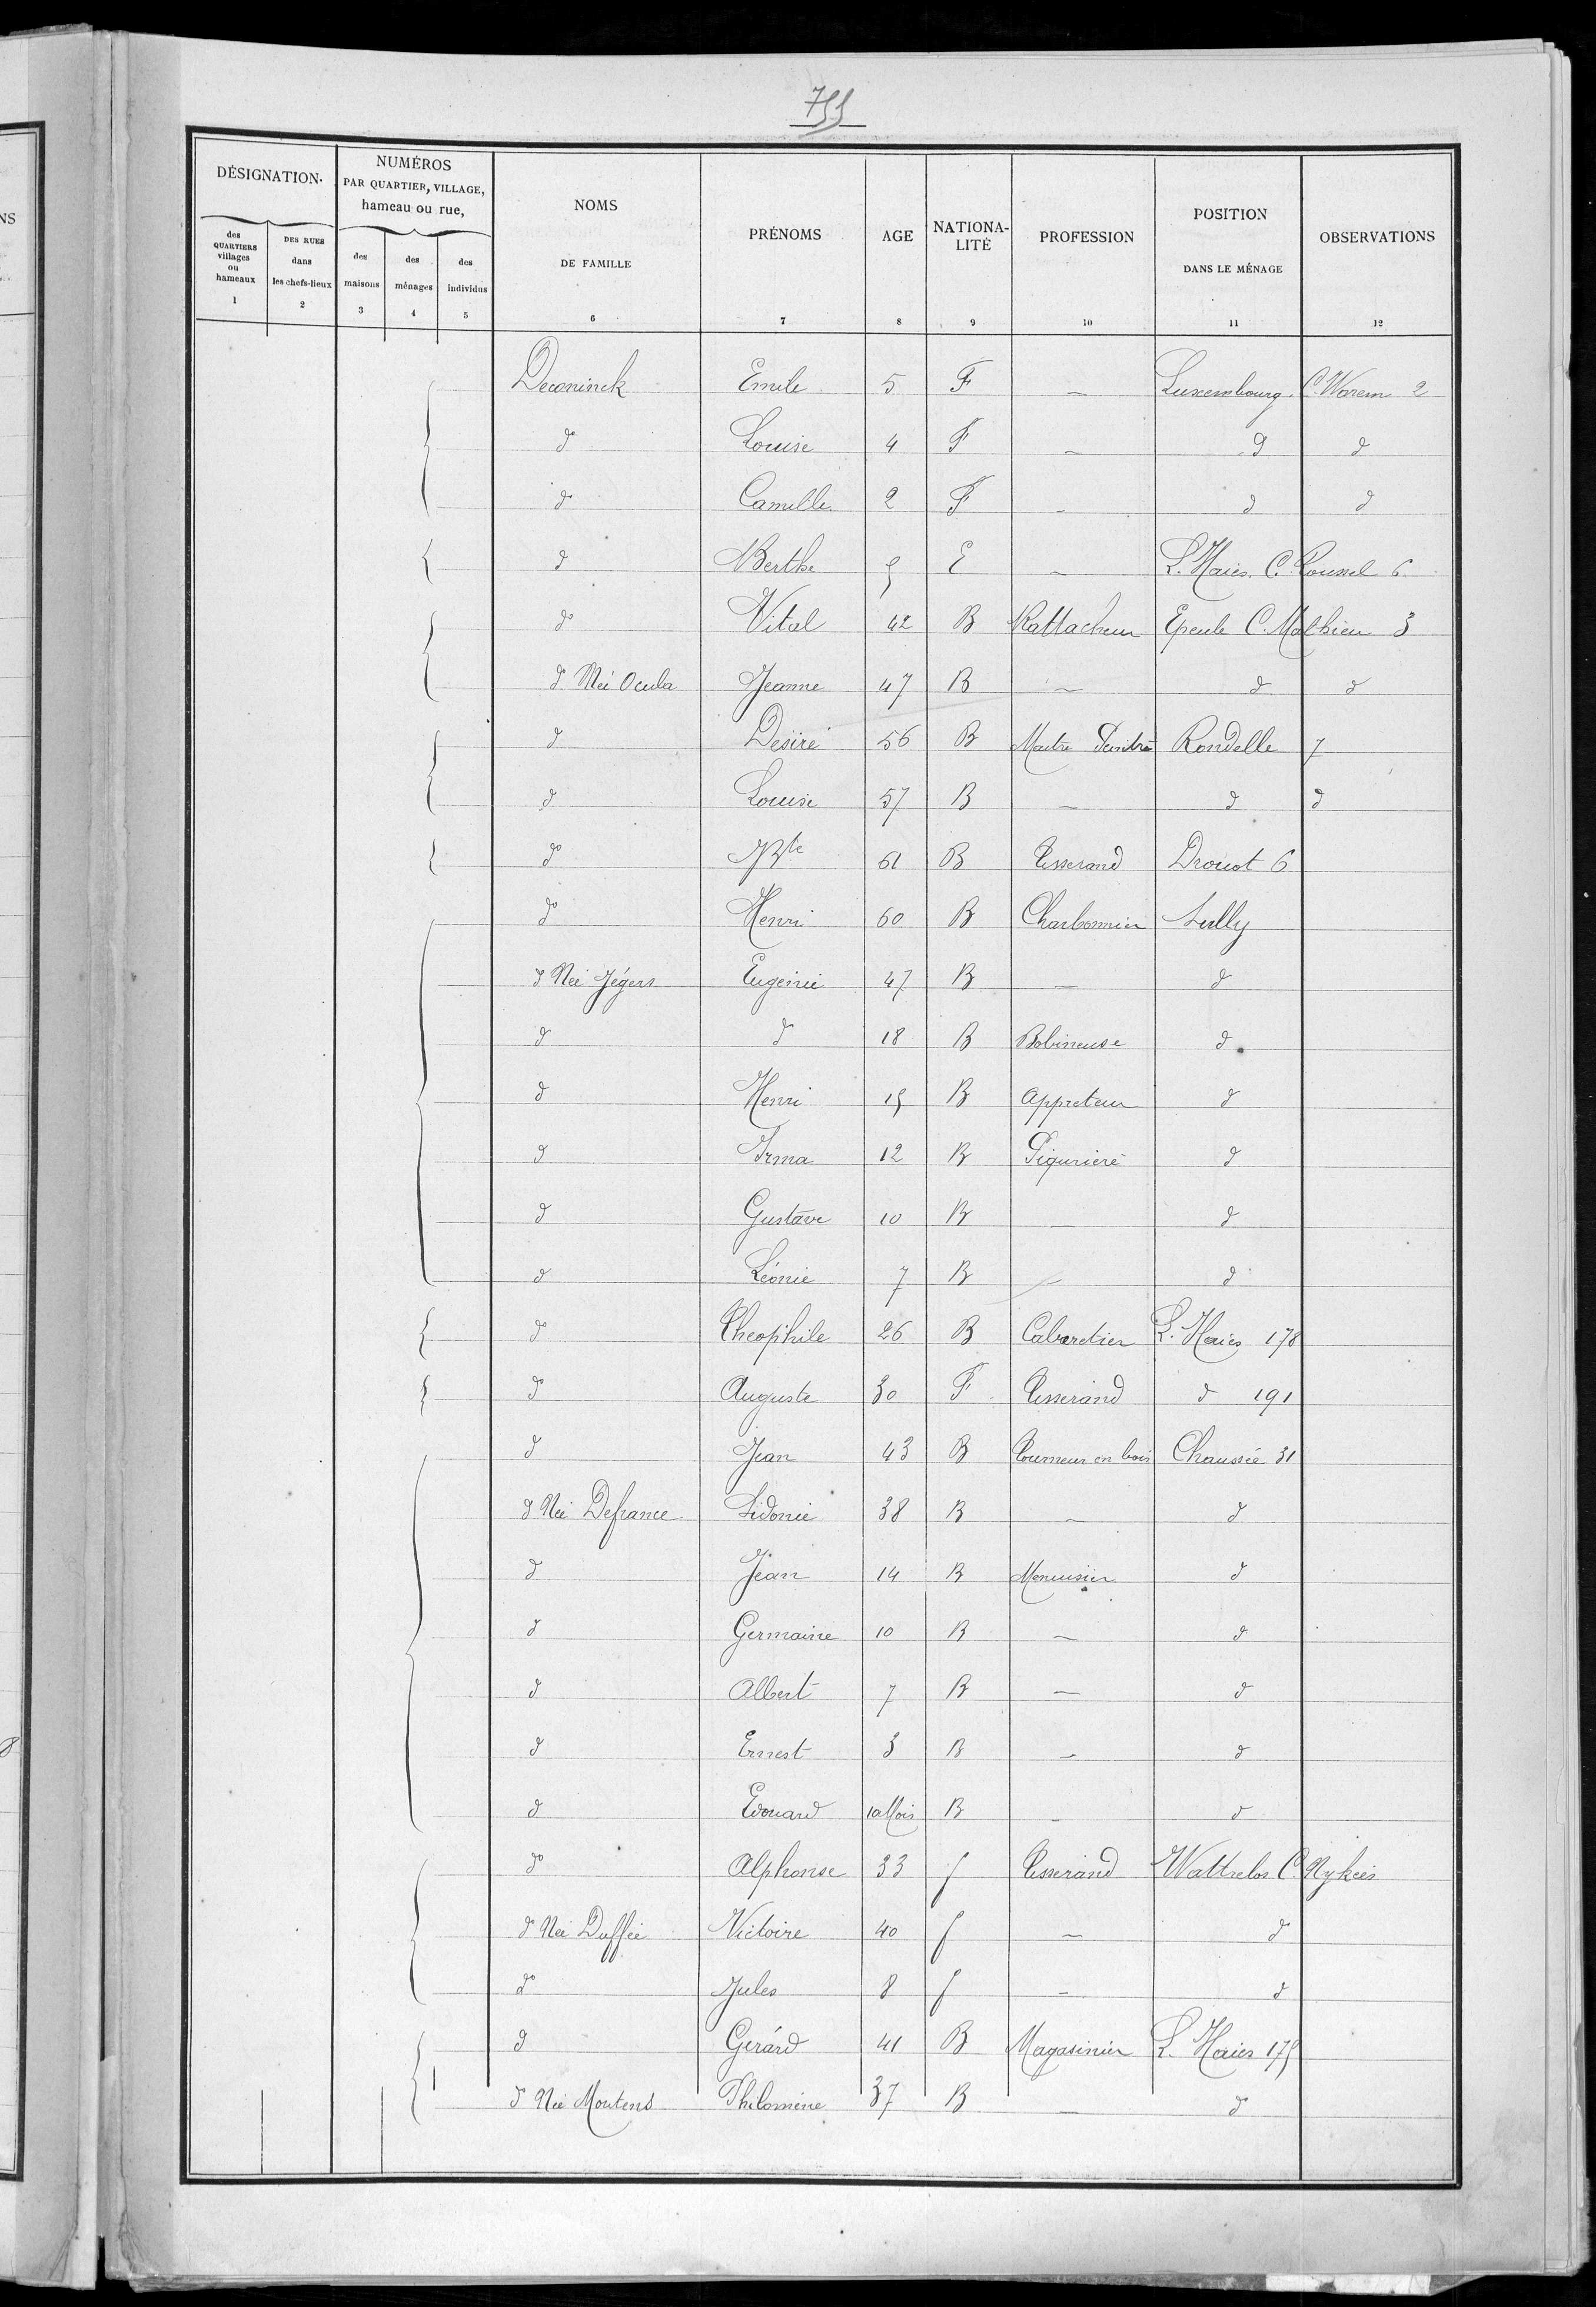 755
DÉSIGNATION.
NUMÉROS
PAR QUARTIER, VILLAGE,
hameau ou rue,
NOMS
DE FAMILLE
PRÉNOMS
AGE
NATIONA-
LITÉ
PROFESSION
POSITION
DANS LE MÉNAGE
OBSERVATIONS
des QUARTIERS villages ou hameaux
DES RUES dans les chefs-lieux
des maisons
des ménages
des individus
1 2 3 4 5 6 7 8 9 10 11 12
Deconinck Emile 5 F — Luxembourg. C. Warem 2
d° Louise 4 F — d d
d° Camille 2 F — d d
d Berthe 5 E — L. Haies. C. Roussel 6
d° Vital 42 B Rattacheur Epeule C. Mathieu 3
d° Née Ocula Jeanne 47 B — d d
d Désiré 56 B Maitre Peintre Rondelle 7
d Louise 57 B — d d
d° JBte 61 B Tisserand Drouot 6
d° Henri 60 B Charbonnier Sully
d Née Jégers Eugénie 47 B — d
d d 18 B Bobineuse d
d Henri 15 B Appreteur d
d Irma 12 B Piqurière d
d Gustave 10 B — d
d Léonie 7 B — d
d° Theophile 26 B Cabaretier L. Haies 178
d° Auguste 30 F Tisserand d 191
d Jean 43 B Tourneur en bois Chaussée 31
d Née Defrance Sidonie 38 B — d
d Jean 14 B Menuisier d
d Germaine 10 B — d
d Albert 7 B — d
d Ernest 3 B — d
d Edouard 10 Mois B — d
d° Alphonse 33 f Tisserand Wattrelos C. Nykees
d° Née Duffée Victoire 40 f — d
d° Jules 8 f — d
d Gerard 41 B Magasinier L. Haies 175
d° Née Moutens Philomène 37 B — d°